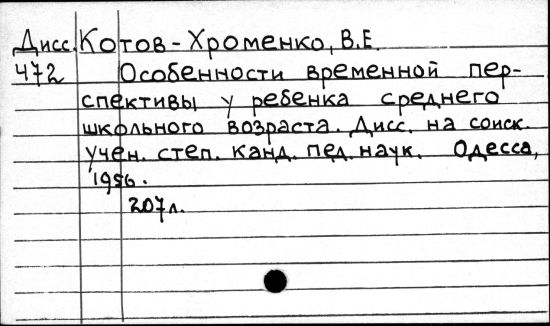 Дисс. Котов-Хроменко, В.Е.
472 Особенности временной пер-
спективы у ребенка среднего
школьного возраста. Дисс. на соиск.
учен. степ. канд. пед. наук. Одесса,
1956.
207л.